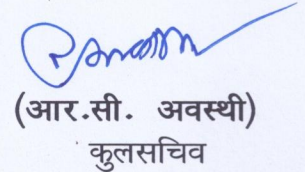 (आर.सी. अवस्थी)
कुलसचिव